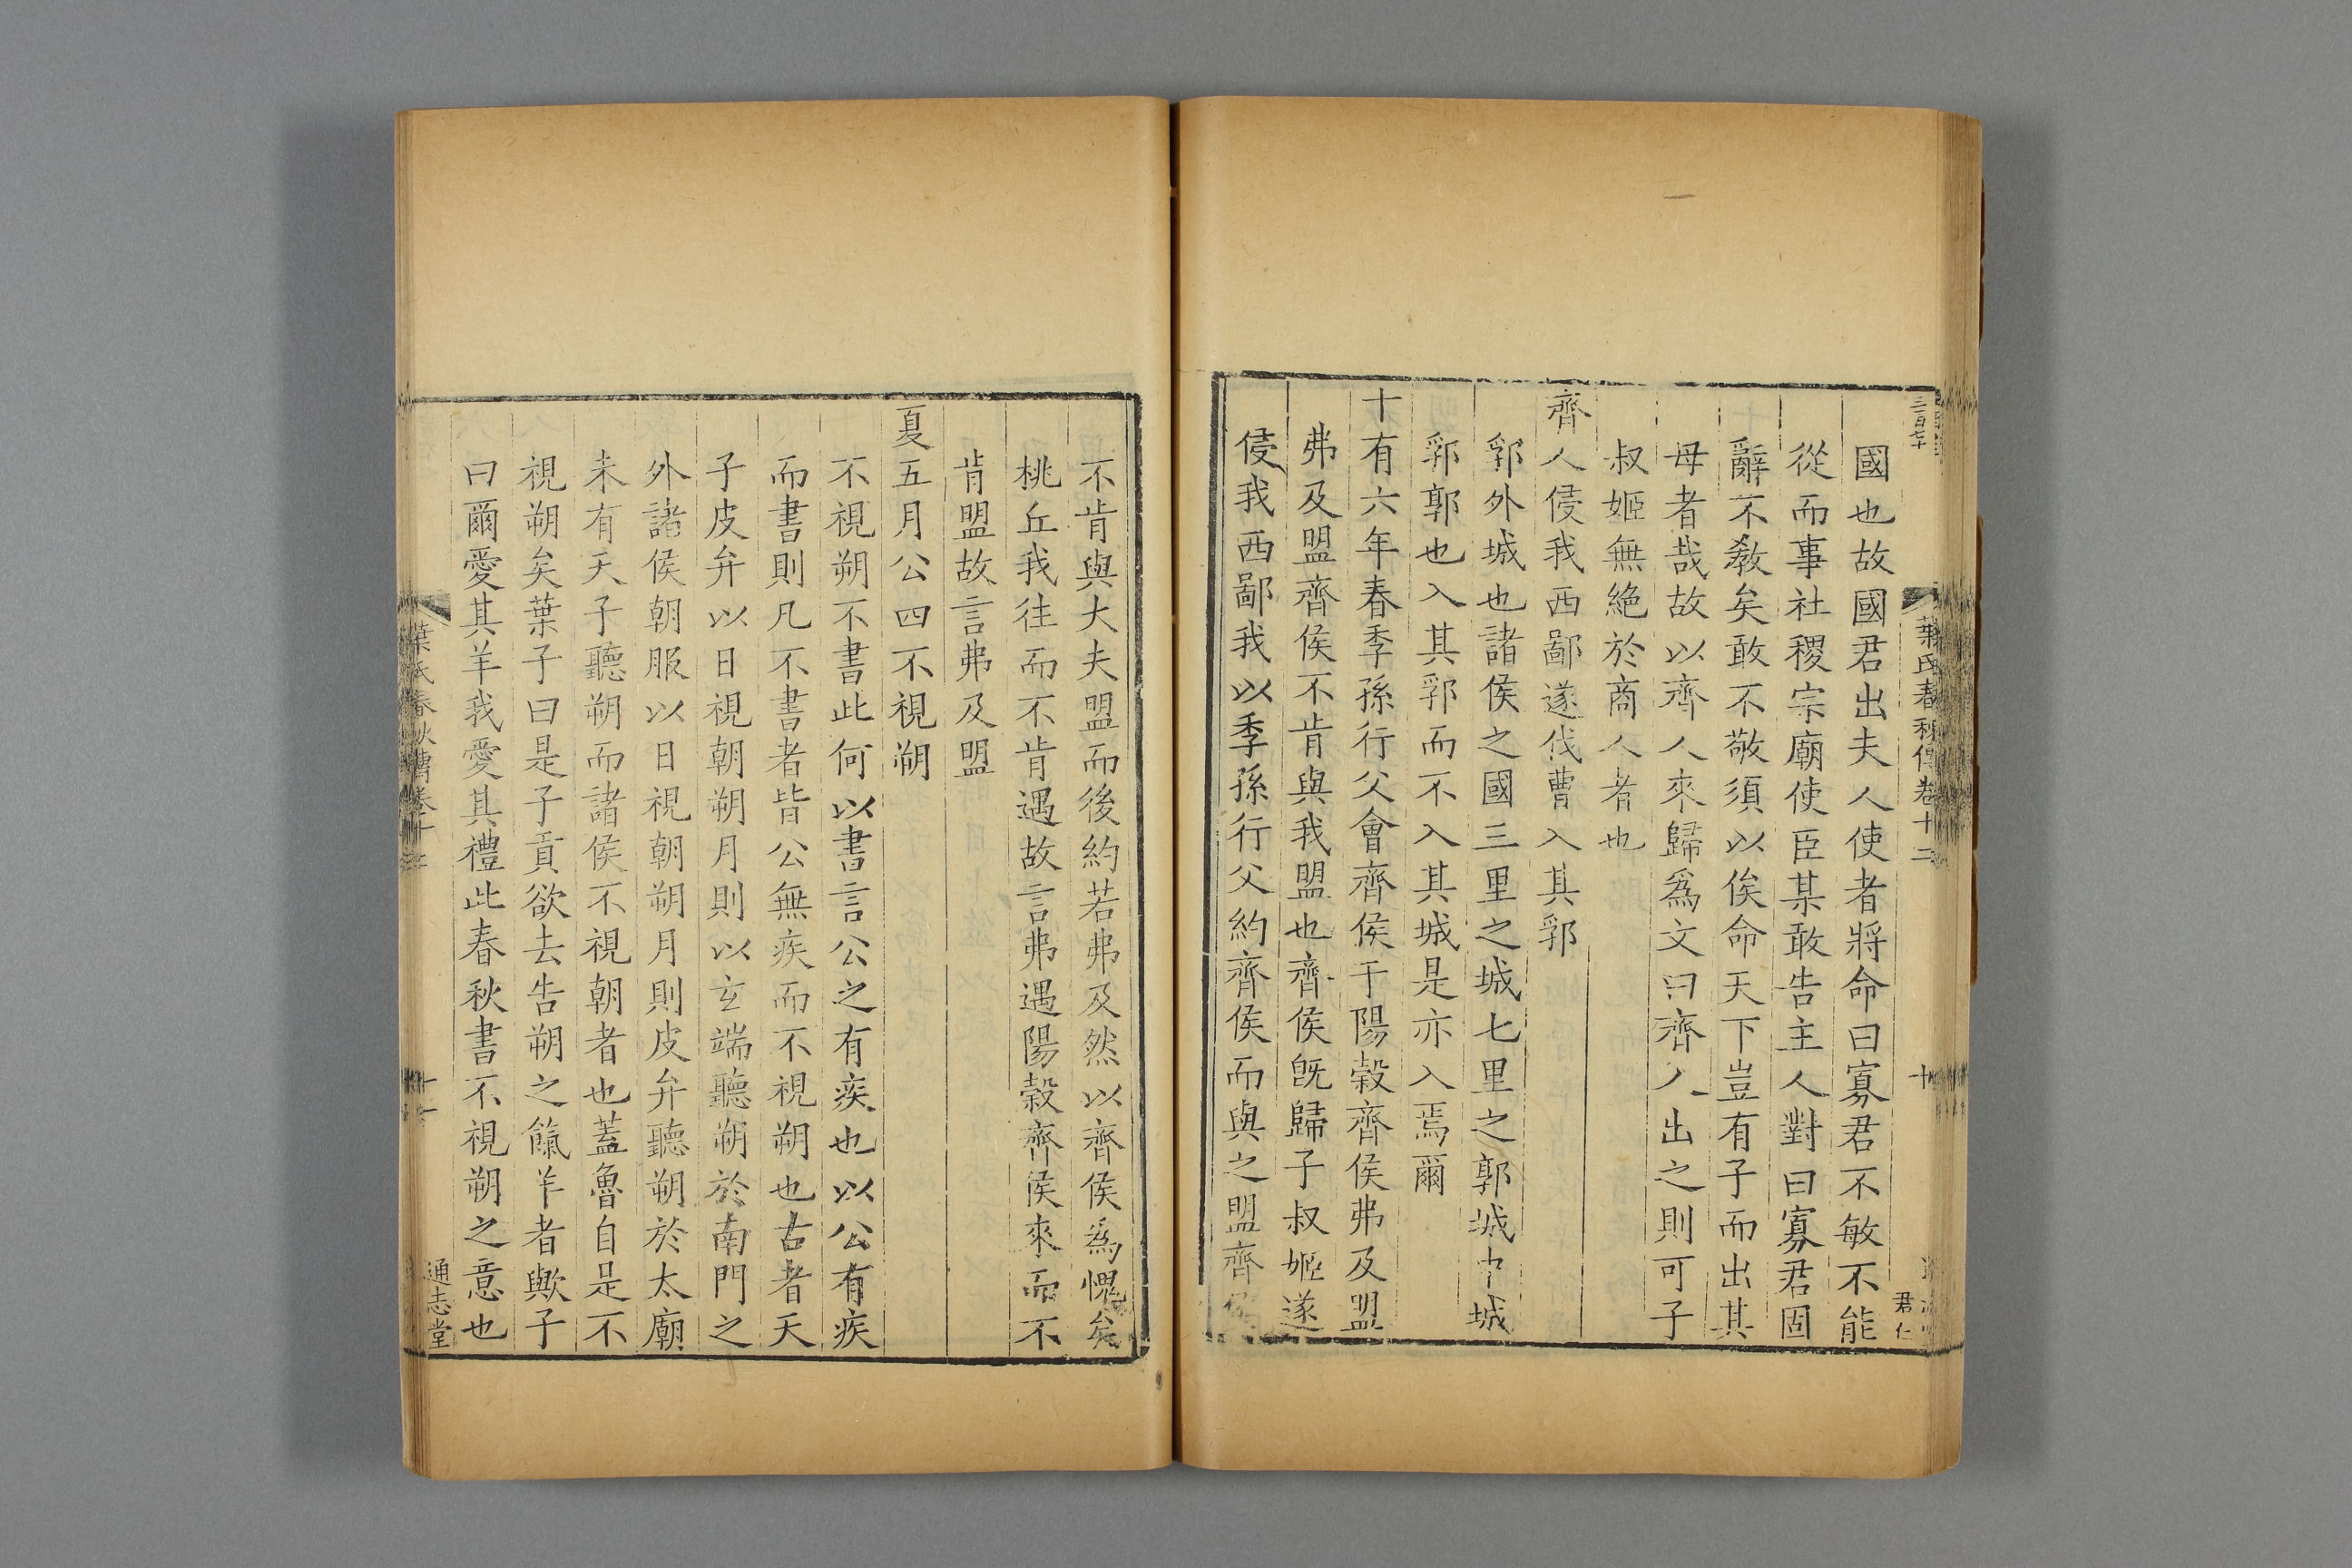 三百七十
葉氏春秋傳卷十二
十
君仁
國也故國君出夫人使者將命曰寡君不敏不能
從而事社稷宗廟使臣某敢告主人對曰寡君固
辭不教矣敢不敬須以俟命天下豈有子而出其
母者哉故以齊人來歸爲文曰齊人出之則可子
叔姬無絶於商人者也
齊人侵我西鄙遂伐曹入其郛
郛外城也諸侯之國三里之城七里之郭城中城
郛郭也入其郛而不入其城是亦入焉爾
十有六年春季孫行父會齊侯于陽穀齊侯弗及盟
弗及盟齊侯不肯與我盟也齊侯旣歸子叔姬遂
侵我西鄙我以季孫行父約齊侯而與之盟齊侯
不肯與大夫盟而後約若弗及然以齊侯爲愧矣
桃丘我往而不肯遇故言弗遇陽穀齊侯來而不
肯盟故言弗及盟
夏五月公四不視朔
不視朔不書此何以書言公之有疾也以公有疾
而書則凡不書者皆公無疾而不視朔也古者天
子皮弁以日視朝朔月則以玄端聽朔於南門之
外諸侯朝服以日視朝朔月則皮弁聽朔於太廟
未有天子聽朔而諸侯不視朝者也蓋魯自是不
視朔矣葉子曰是子貢欲去告朔之餼羊者歟子
曰爾愛其羊我愛其禮此春秋書不視朔之意也
葉氏春秋傳卷十二
十一
通志堂